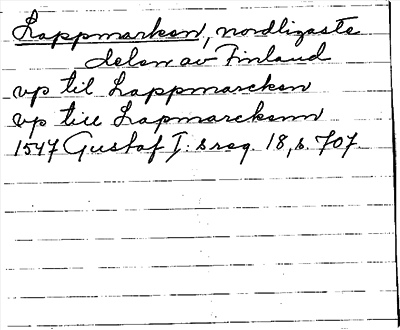 Lappmarken, nordligaste
delen av Finland
vp til Lappmarcken
vp till Lapmarckenn
1547 Gustaf I:s reg. 18, s. 707.